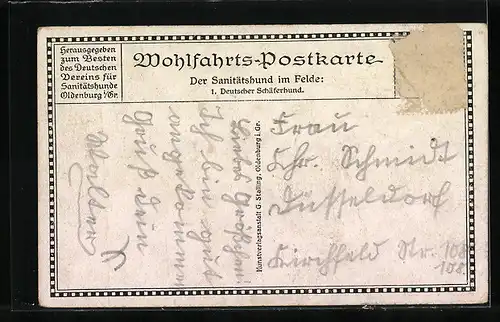 Herausgegeben
zum Besten
des Deutschen
Vereins für
Sanitätshunde
Oldenburg i/Gr.
Wohlfahrts-Postkarte
Der Sanitätshund im Felde:
1. Deutscher Schäferhund.
Ich bin gut
angekommen
Gruß dein
Walter
Kunstverlagsanstalt G. Stalling, Oldenburg i. Gr.
Frau
Chr. Schmidt
Düsseldorf
Kirchfeld Str. 108
108.